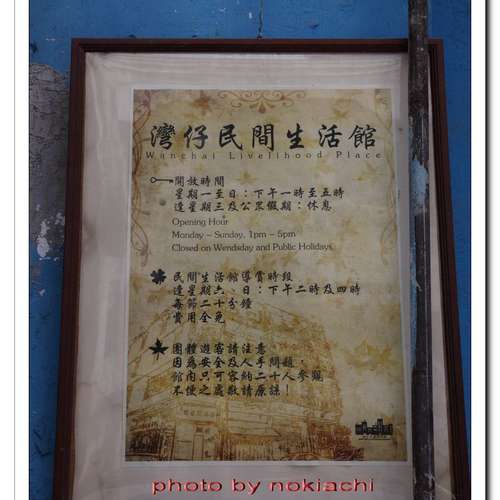 灣仔民間生活館
Wanchai Livelihood Place
開放時間
星期一至日：下午一時至五時
逢星期三及公眾假期：休息
Opening Hour
Monday – Sunday, 1pm – 5pm
Closed on Wendsday and Public Holidays
民間生活館導賞時段
逢星期六、日：下午二時及四時
每節二十分鐘
費用全免
團體遊客請注意
因為安全及人手問題，
館內只可容納二十人參觀
不便之處敬請原諒！
photo by nokiachi